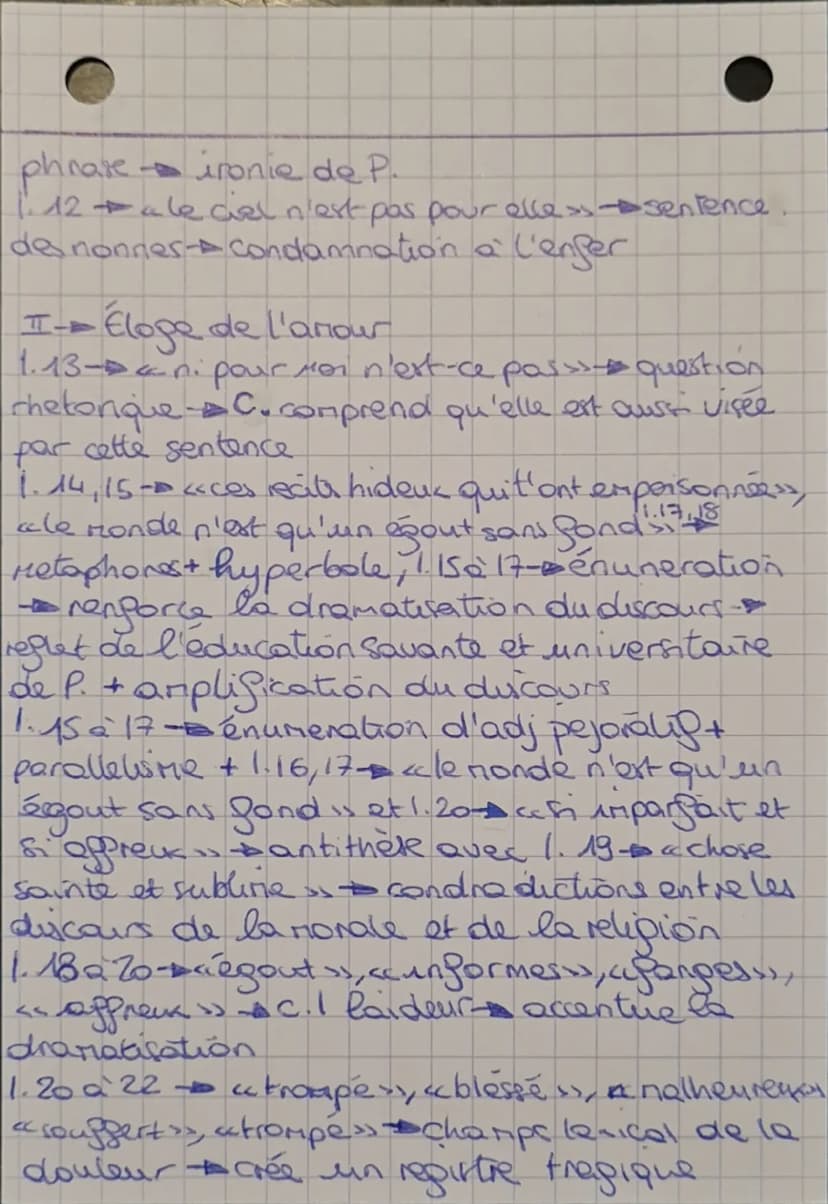 phrase → ironie de P.
l.12 → « le ciel n'est pas pour elle » → sentence
des nonnes → condamnation à l'enfer
II → Éloge de l'amour
l.13 → « ni pour moi n'est-ce pas » → question
rhétorique → C. comprend qu'elle est aussi visée
par cette sentence
l.14,15 → « ces récits hideux qui t'ont empoisonnée »,
« le monde n'est qu'un égout sans fond » l.17,18 →
Métaphores + hyperbole, l.15 à 17 → énumération
→ renforce la dramatisation du discours →
reflet de l'éducation savante et universitaire
de P. + amplification du discours
l.15 à 17 → énumération d'adj péjoratifs +
parallélisme + l.16,17 → « le monde n'est qu'un
égout sans fond » et l.20 → « si imparfait et
si affreux » → antithèse avec l.19 → « chose
sainte et sublime » → condradictions entre les
discours de la morale et de la religion
l.18 à 20 → « égout », « informes », « fanges »,
« affreux » → c.l laideur → accentue la
dramatisation
l.20 à 22 → « trompé », « bléssé », « malheureux »
« souffert », « trompé » → champs lexical de la
douleur → crée un registre tragique